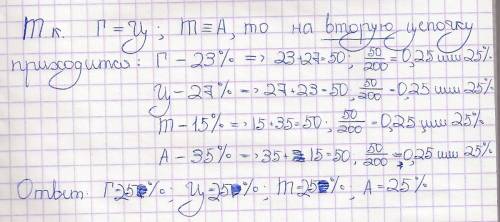 Т.к. Г=Ц; Т≡А, то на вторую цепочку
приходится: Г – 23% => 23+27=50, 50/200=0,25 или 25%
Ц – 27% => 27+23=50, 50/200=0,25 или 25%
Т – 15% => 15+35=50; 50/200=0,25 или 25%
А – 35% => 35+15=50, 50/200=0,25 или 25%
Ответ: Г=25%; Ц=25%; Т=25%, А=25%